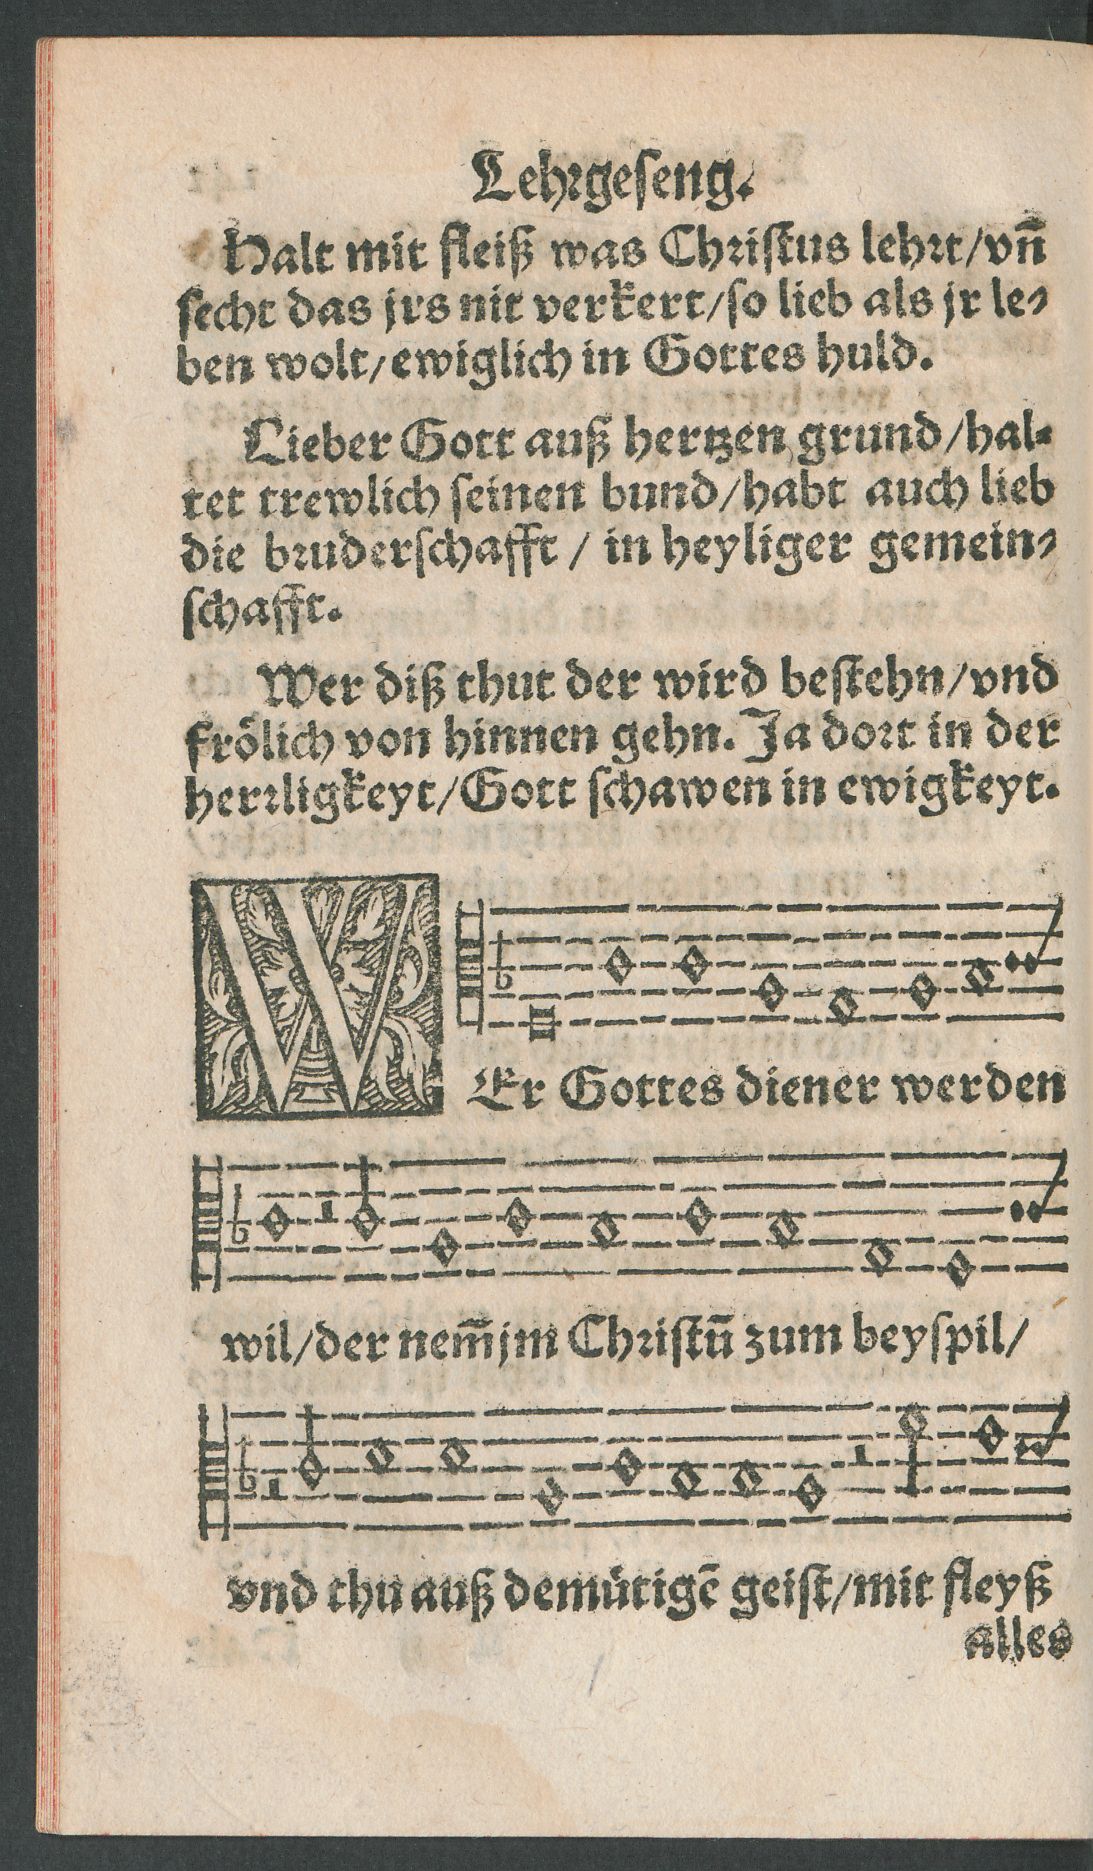 Lehrgeseng.
Halt mit fleiß was Christus lehrt/vñ
secht das jrs nit verkert/so lieb als jr le⸗
ben wolt/ewiglich in Gottes huld.
Lieber Gott auß hertzen grund/hal⸗
tet trewlich seinen bund/habt auch lieb
die bruderschafft / in heyliger gemein⸗
schafft.
Wer diß thut der wird bestehn/vnd
frölich von hinnen gehn. Ja dort in der
herrligkeyt/Gott schawen in ewigkeyt.
WEr Gottes diener werden
wil/der nem̃ jm Christũ zum beyspil/
vnd thu auß demütigẽ geist/mit fleyß
alles